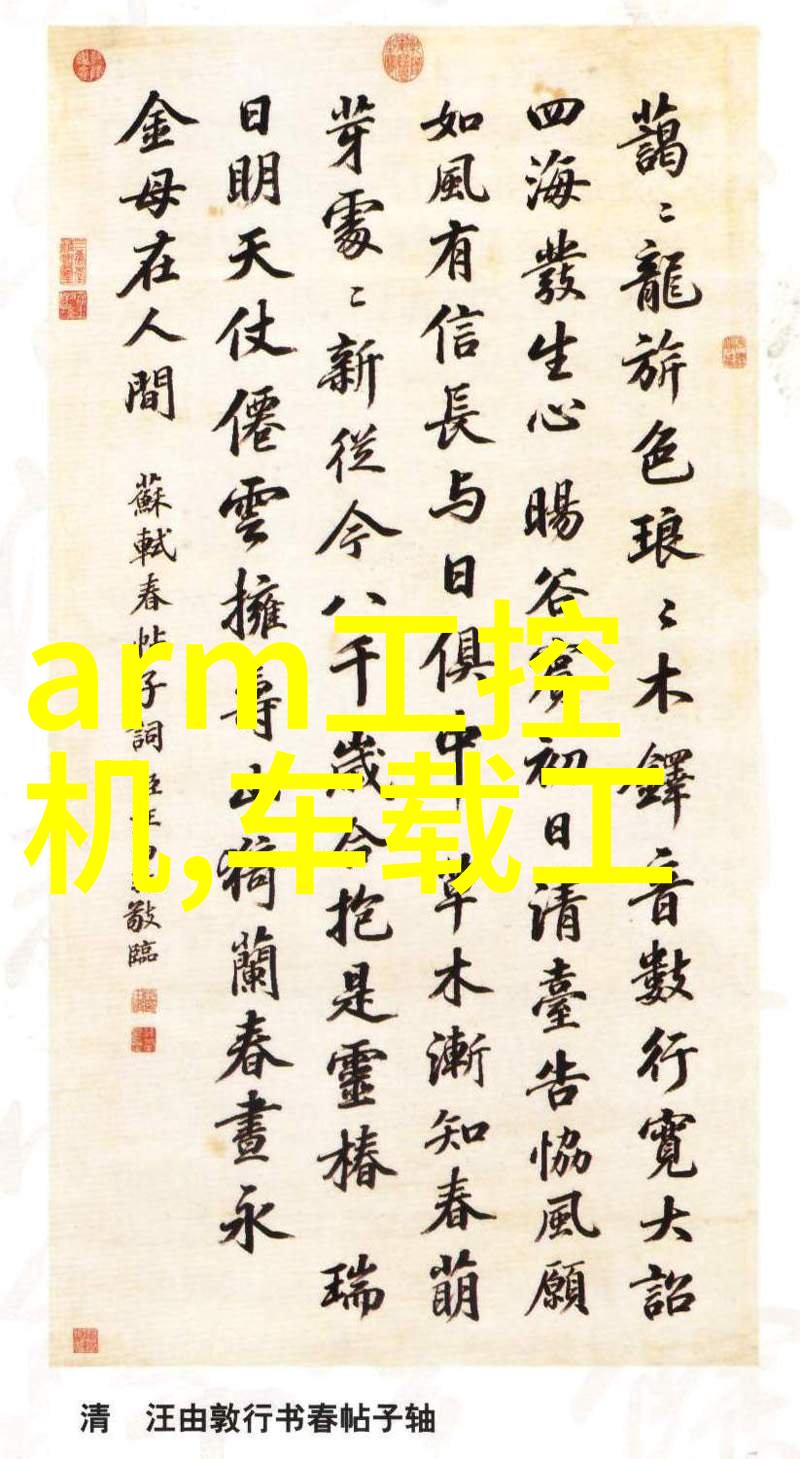 藹〻龍旂色琅〻木鐸音數行寬大詔
四海發生心 暘谷賓初日清臺告協風願
如風有信長与日俱中 草木漸知春萌
芽處〻新從今八千歲合抱是靈椿 瑞
日明天仗僊雲擁壽山猗蘭春晝永
金母在人間
蘇軾春帖子詞 臣汪由敦敬臨
arm工控
机,车载工
清 汪由敦行书春帖子轴